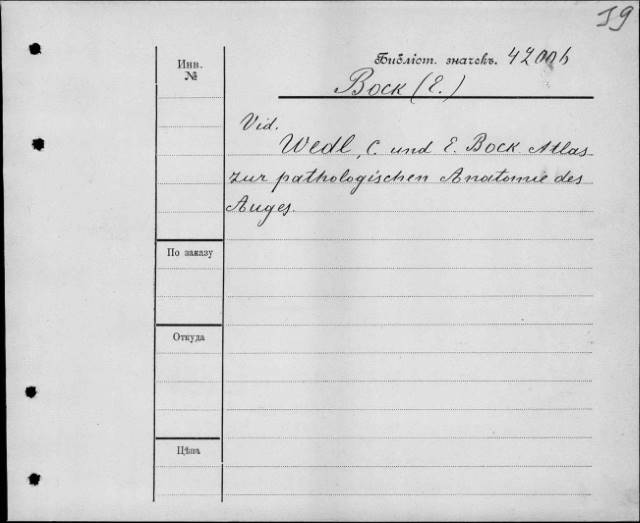 19
Инв.
№
Библіот. значекъ. 42006
Bock (E.)
Vid.
Wedl, C. und E. Bock. Atlas
zur pathologischen Anatomie des
Auges.
По заказу
Откуда
Цѣна